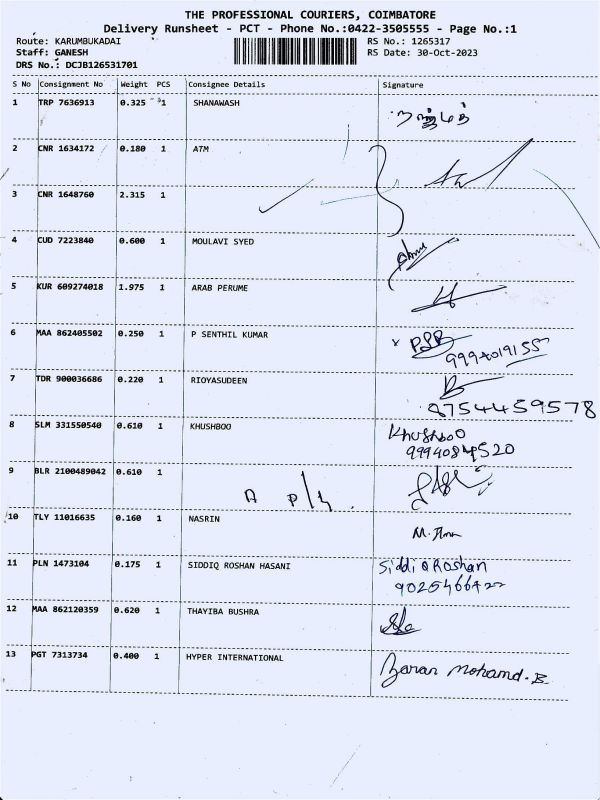 THE PROFESSIONAL COURIERS, COIMBATORE
Delivery Runsheet - PCT - Phone No.:0422-3505555 - Page No.:1
Route: KARUMBUKADAI RS No.: 1265317
Staff: GANESH RS Date: 30-Oct-2023
DRS No.: DCJB126531701
S No Consignment No Weight PCS Consignee Details Signature
1 TRP 7636913 0.325 1 SHANAWASH
2 CNR 1634172 0.180 1 ATM
3 CNR 1648760 2.315 1
4 CUD 7223840 0.600 1 MOULAVI SYED
5 KUR 609274018 1.975 1 ARAB PERUME
6 MAA 862405502 0.250 1 P SENTHIL KUMAR
9994019155
7 TDR 900036686 0.220 1 RIOYASUDEEN
8754459578
8 SLM 331550540 0.610 1 KHUSHBOO Khushboo
9994084520
9 BLR 2100489042 0.610 1
10 TLY 11016635 0.160 1 NASRIN
11 PLN 1473104 0.175 1 SIDDIQ ROSHAN HASANI Siddiq Roshan
9025466422
12 MAA 862120359 0.620 1 THAYIBA BUSHRA
13 PGT 7313734 0.400 1 HYPER INTERNATIONAL Baran Mohamd.B